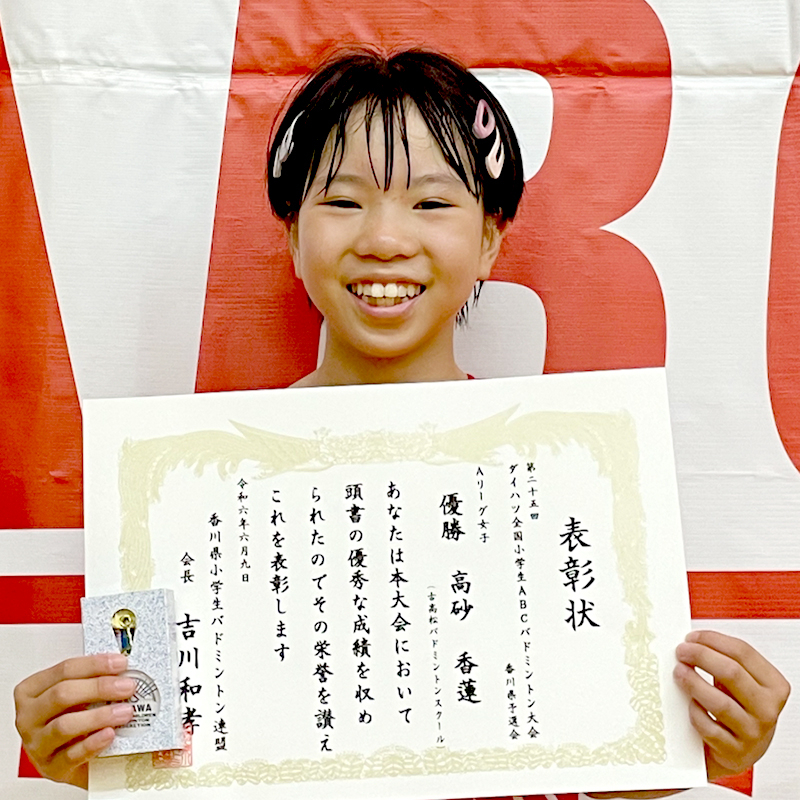 表彰状
第二十五回
ダイハツ全国小学生ABCバドミントン大会
香川県予選会
Aリーグ女子
優勝 高砂 香蓮
(古高松バドミントンスクール)
あなたは本大会において
頭書の優秀な成績を収め
られたのでその栄誉を讃え
これを表彰します
令和六年六月九日
香川県小学生バドミントン連盟
会長 吉川和孝